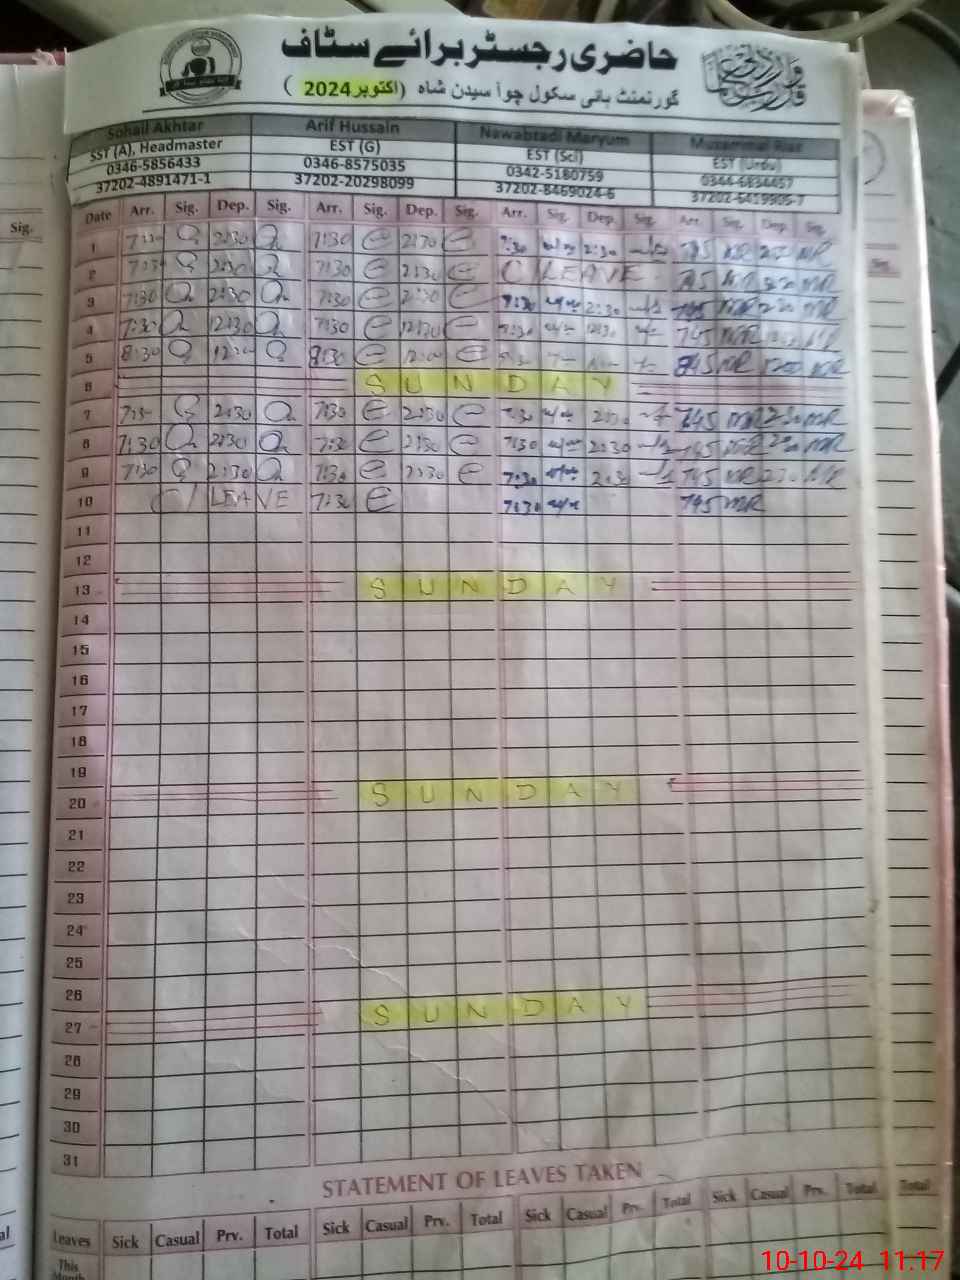 حاضری رجسٹر برائے سٹاف
گورنمنٹ ہائی سکول چوآ سیدن شاہ (اکتوبر 2024)
Sohail Akhtar Arif Hussain Nawabzadi Maryum Muzammal Riaz
SST (A), Headmaster EST (G) EST (Sci) EST (Urdu)
0346-5856433 0346-8575035 0342-5180759
37202-4891471-1 37202-20298099 37202-8469024-6
Date Arr. Sig. Dep. Sig. Arr. Sig. Dep. Sig. Arr. Sig. Dep. Sig. Arr. Sig. Dep. Sig.
1 7:30 2:30 7:30 2:30 7:30 2:30 745 MR MR
2 7:30 2:30 7:30 2:30 C/LEAVE 745 MR MR
3 7:30 2:30 7:30 2:30 7:30 2:30 745 MR 230 MR
4 7:30 12:30 7:30 12:30 7:30 12:30 745 MR MR
5 8:30 8:30 12:00 845 MR 1200 MR
6 SUNDAY
7 7:30 2:30 7:30 2:30 7:30 2:30 745 MR 230 MR
8 7:30 2:30 7:30 2:30 7:30 2:30 745 MR 230 MR
9 7:30 2:30 7:30 2:30 7:30 2:30 745 MR 230 MR
10 C/LEAVE 7:30 7:30 745 MR
11
12
13 SUNDAY
14
15
16
17
18
19
20 SUNDAY
21
22
23
24
25
26
27 SUNDAY
28
29
30
31
STATEMENT OF LEAVES TAKEN
Leaves Sick Casual Prv. Total Sick Casual Prv. Total Sick Casual Prv. Total Sick Casual Prv. Total Total
This
Month
Sig.
10-10-24 11.17